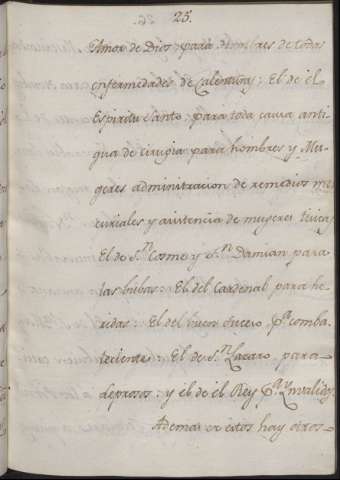 25.
Amor de Dios, para Hombres de todas
enfermedades de Calenturas: El de el
Espiritu Santo, para toda causa anti-
gua de cirugia para hombres y Mu-
geres administracion de remedios mer
curiales y asistencia de mugeres tisicas
El de S.n Cosme y S.n Damian para
las bubas: El del Cardenal para he-
ridas: El del buen suceso, p.a comba
lecientes: El de S.n Lazaro, para
leprosos: y el de el Rey p.a Ynvalidos.
Ademas de estos hay otros